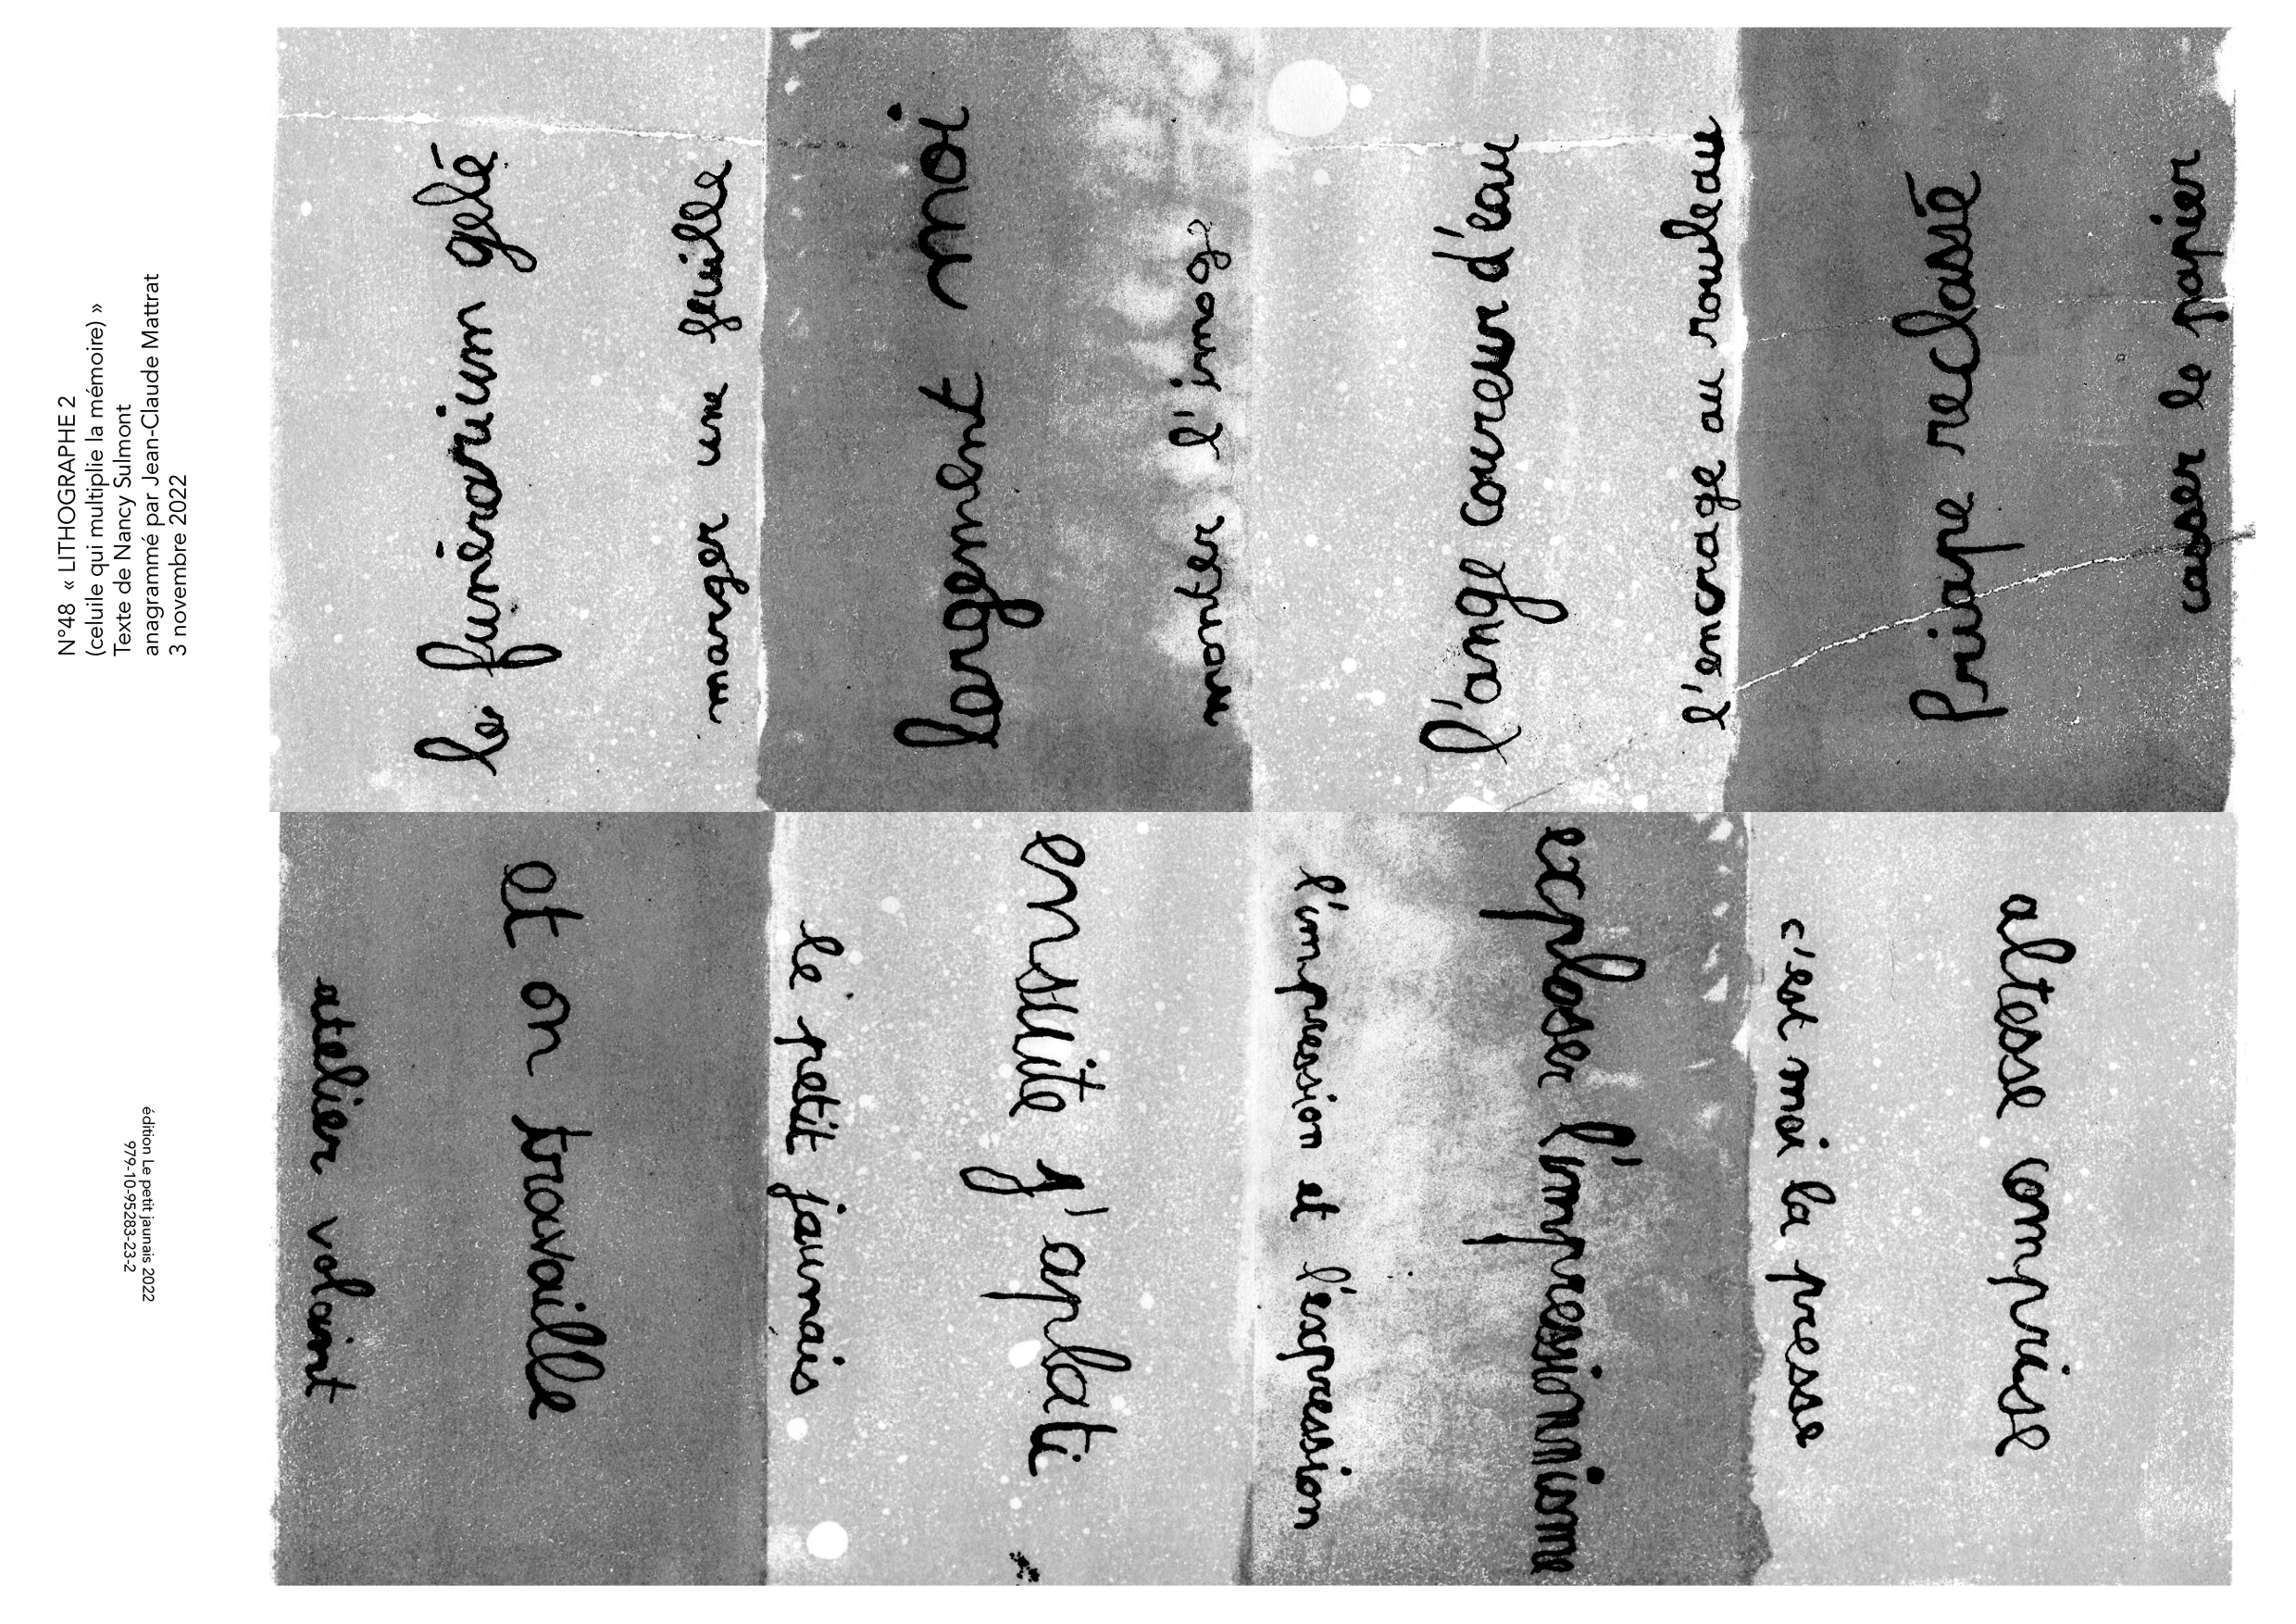 N°48 « LITHOGRAPHE 2
(celuile qui multiplie la mémoire) »
Texte de Nancy Sulmont
anagrammé par Jean-Claude Mattrat
3 novembre 2022
le funérarium gelé
manger une feuille
largement moi
monter l'image
l'ange coureur d'eau
l'encrage au rouleau
Priape reclassé
casser le papier
altesse comprise
c'est moi la presse
exploser
l'impression et l'expression
ensuite j'aplati
le petit jaunais
et on travaille
atelier volant
édition Le petit jaunais 2022
979-10-95283-23-2